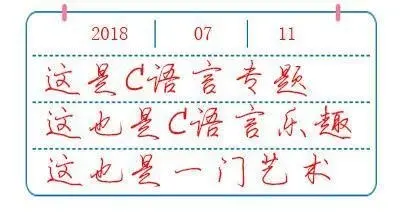 2018 | 07 | 11
这是C语言专题
这也是C语言乐趣
这也是一门艺术